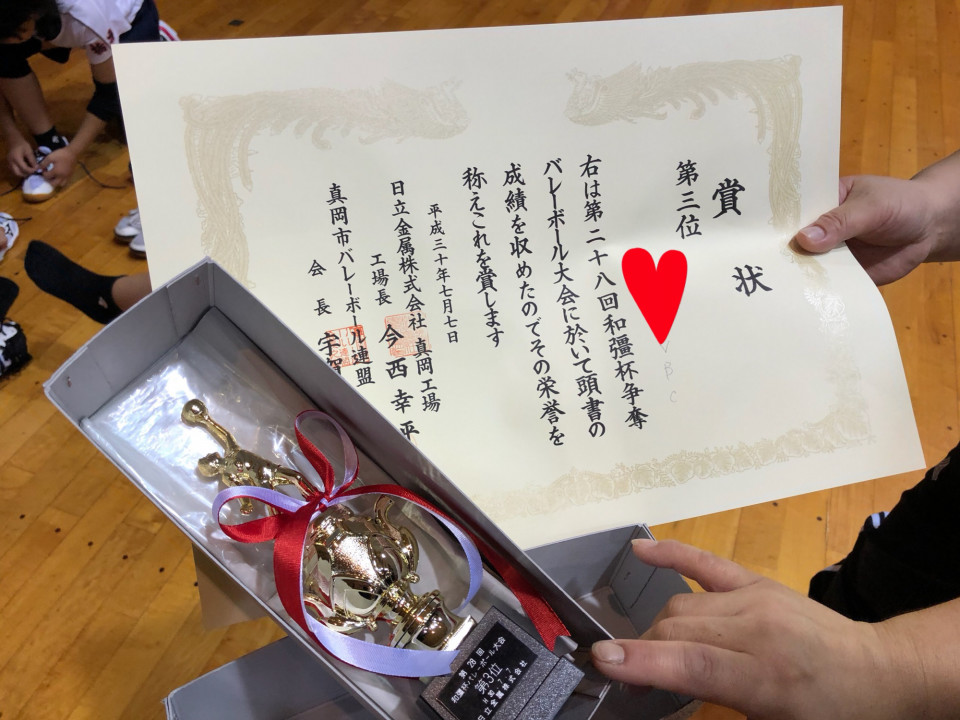 賞状
第三位
VBC
右は第二十八回和彊杯争奪
バレーボール大会に於いて頭書の
成績を収めたのでその栄誉を
称えこれを賞します
平成三十年七月七日
日立金属株式会社 真岡工場
工場長 今西幸平
真岡市バレーボール連盟
会長 宇賀
第28回
和彊杯バレーボール大会
第3位
H30.7.7
日立金属株式会社